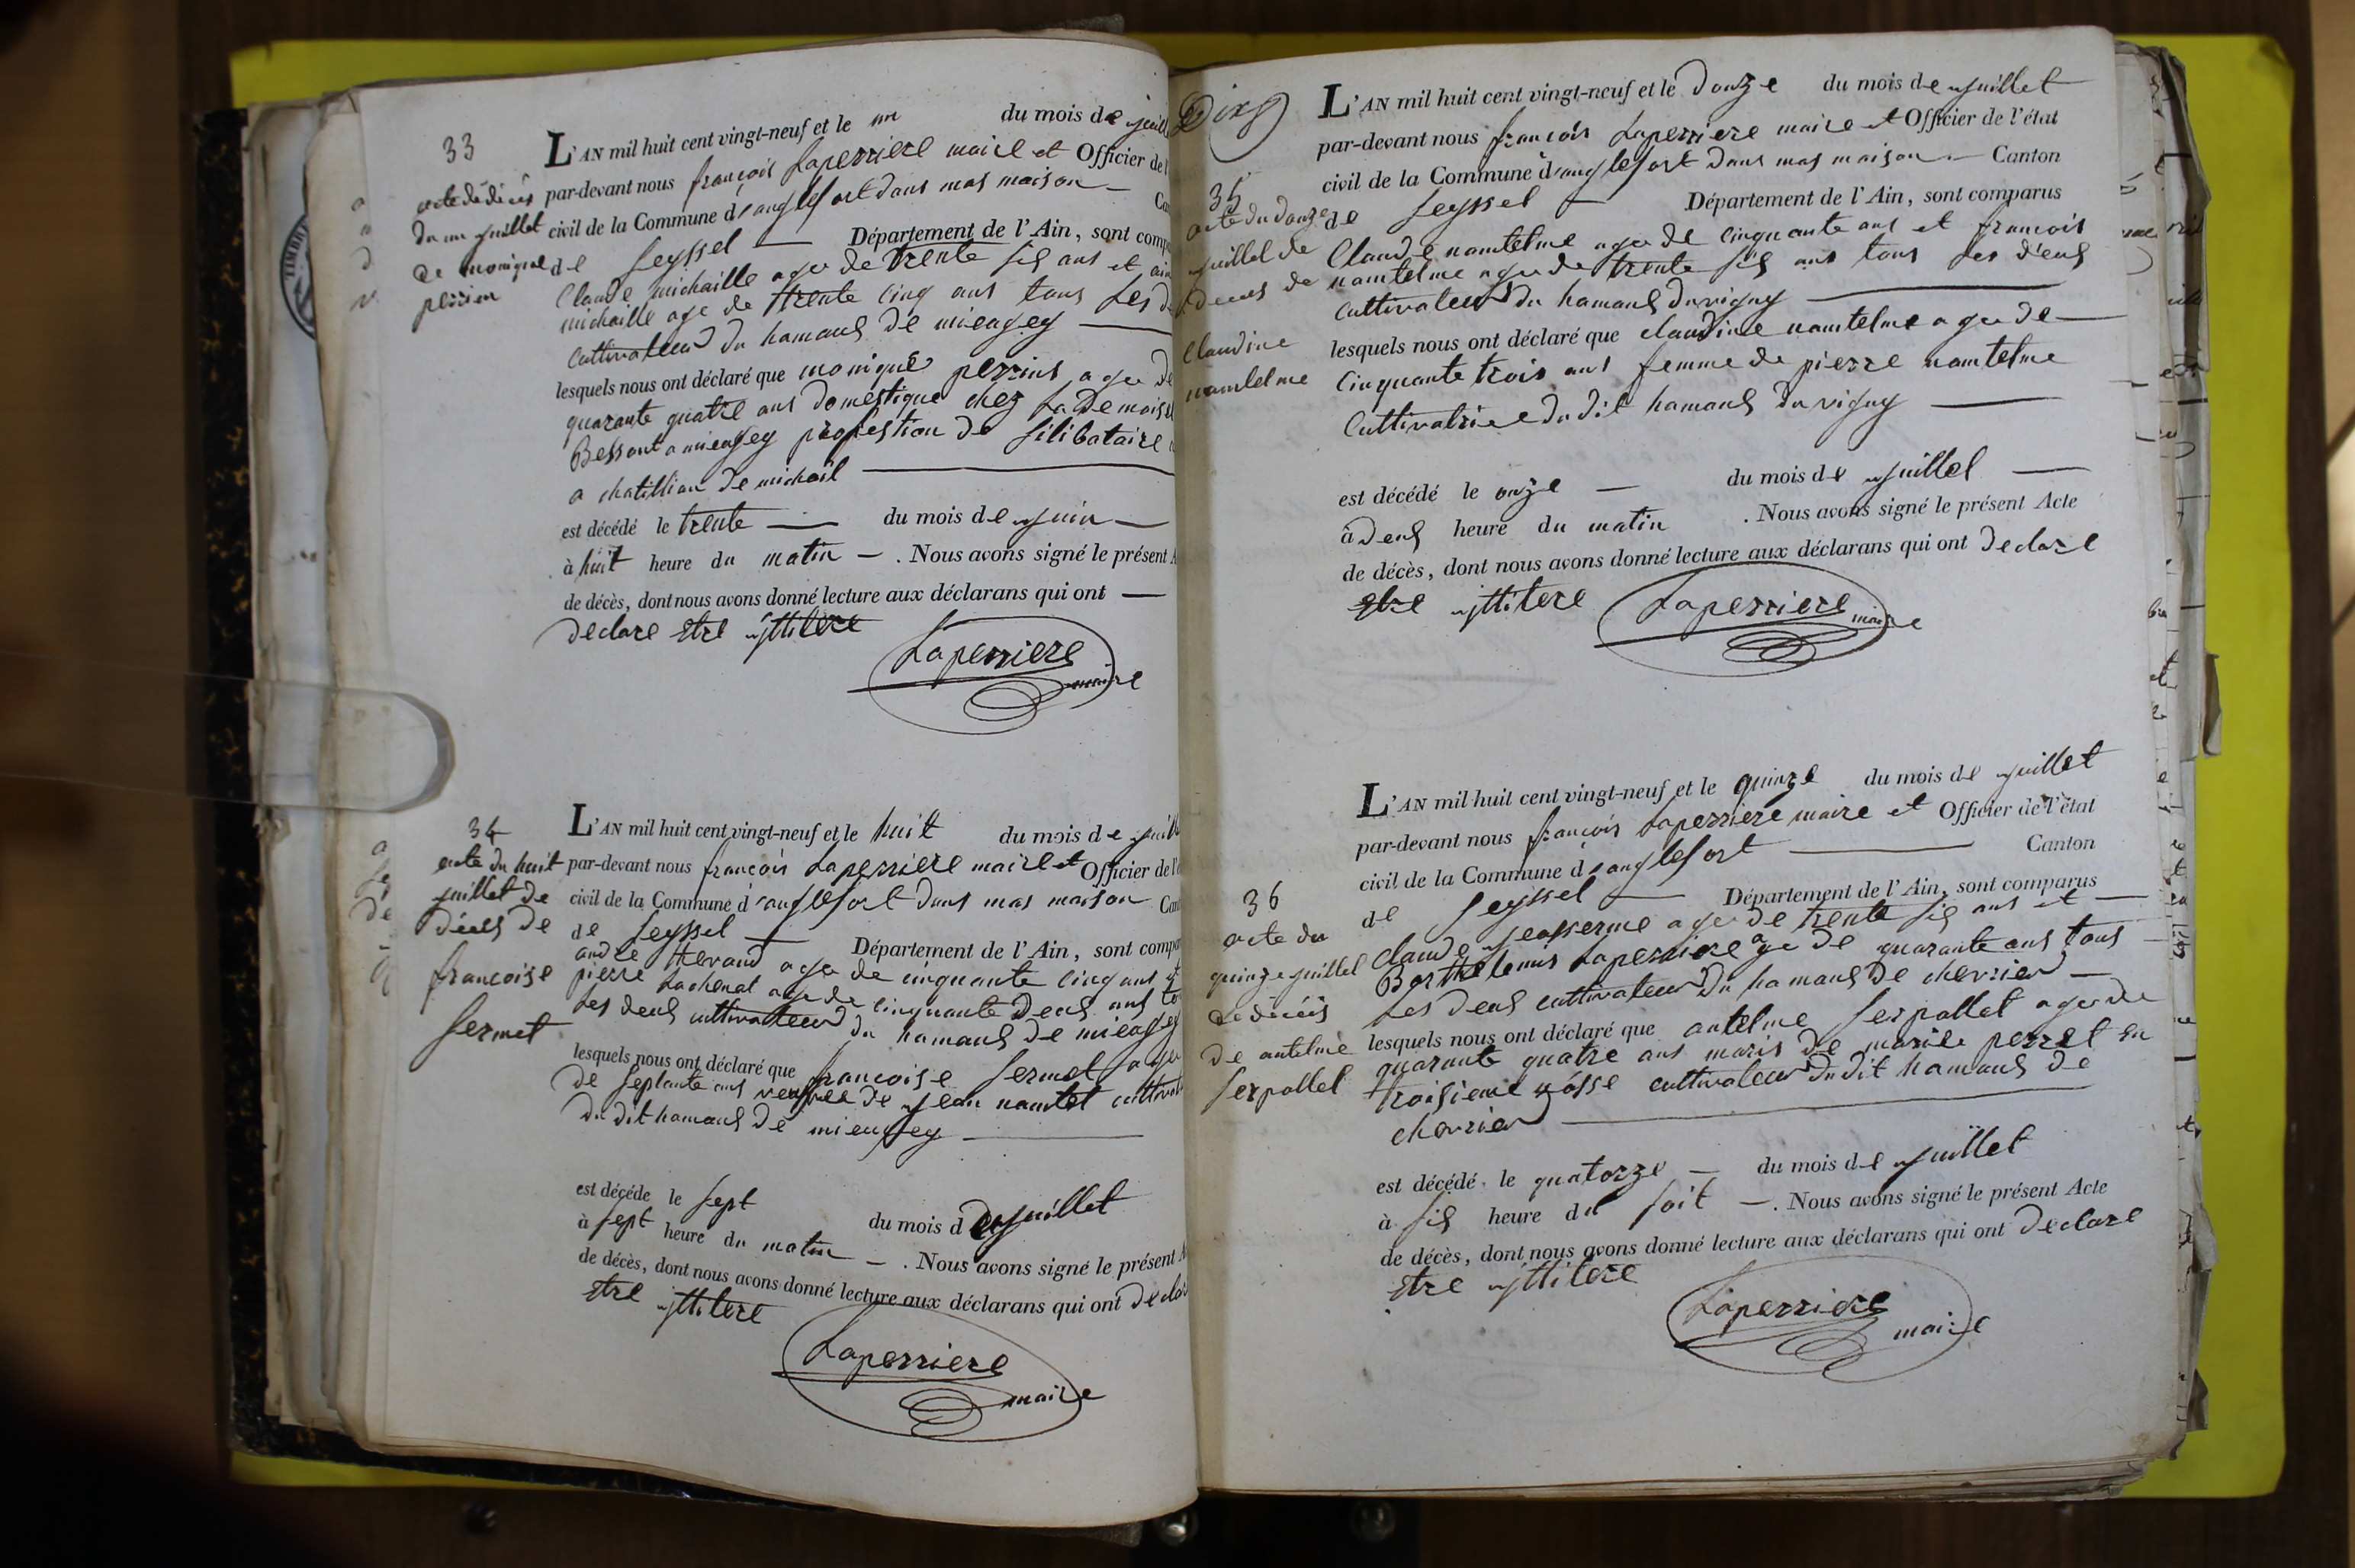 33
acte de décès
du un juillet
de monique
perrien
L'AN mil huit cent vingt-neuf et le un du mois de juill
par-devant nous françois Laperriere maire et Officier de l
civil de la Commune d'anglefort dans mas maison —
de Seyssel — Département de l'Ain, sont comp
Claude michaille agee de trente sis ans et
michaille age de trente cinq ans tous Les d
cultivateur du hamaus de mieugey —
lesquels nous ont déclaré que monique perrins agee de
quarante quatre ans domestique chez La demoisel
Bessont a mieugey profestion de silibataire
a chatillian de michail —
est décédé le trente — du mois de juin —
à huit heure du matin — . Nous avons signé le présent A
de décès, dont nous avons donné lecture aux déclarans qui ont —
declare etre jttilere
Laperriere
maire
34
acte du huit
juillet de
décès de
francoise
sermet
L'AN mil huit cent vingt-neuf et le huit du mois de juill
par-devant nous françois Laperriere maire et Officier de l'é
civil de la Commune d'anglefort dans mas maison Can
de Seyssel — Département de l'Ain, sont compa
andre Hevand agee de cinquante cinq ans et
pierre Lachenal age de cinquante deus ans to
Les deus cultivateur du hamaus de mieugey
lesquels nous ont déclaré que francoise sermet agee
de septante ans veufvee de jean nantet cultivat
du dit hamaus de mieugey —
est décédé le sept du mois de juillet
à sept heure du matin — . Nous avons signé le présent A
de décès, dont nous avons donné lecture aux déclarans qui ont decla
etre jttilere
Laperriere
maire
35
acte du douze
juillet de
deces de
Claudine
namtelme
L'AN mil huit cent vingt-neuf et le douze du mois de juillet
par-devant nous françois Laperriere maire et Officier de l'état
civil de la Commune d'anglefort dans mas maison — Canton
de Seyssel — Département de l'Ain, sont comparus
Claude namtelme agee de cinquante ans et francois
namtelme agee de trente sis ans tous Les d'eus
cultivateur du hamaus du vigny —
lesquels nous ont déclaré que claudine namtelme agee de —
cinquante trois ans femme de pierre namtelme
cultivatrice du dit hamaus du vigny —
est décédé le onze — du mois de juillet —
à deus heure du matin . Nous avons signé le présent Acte
de décès, dont nous avons donné lecture aux déclarans qui ont declare
etre jttilere
Laperriere
maire
36
acte du
quinze juillet
de décéis
de antelme
serpollet
L'AN mil huit cent vingt-neuf et le quinze du mois de juillet
par-devant nous françois Laperriere maire et Officier de l'état
civil de la Commune d'anglefort — Canton
de Seyssel — Département de l'Ain, sont comparus
claude jeasserme agee de trente sis ans et —
Berthelemis Laperriere age de quarante ans tous
Les deus cultivateur du hamaus de chevrier —
lesquels nous ont déclaré que antelme serpollet agee de
quarante quatre ans maris de marie perret en
troisieme nosse cultivateur du dit hamaus de
chevrier —
est décédé le quatorze — du mois de juillet
à sis heure du soit — . Nous avons signé le présent Acte
de décès, dont nous avons donné lecture aux déclarans qui ont declare
etre jttilere
Laperriere
maire